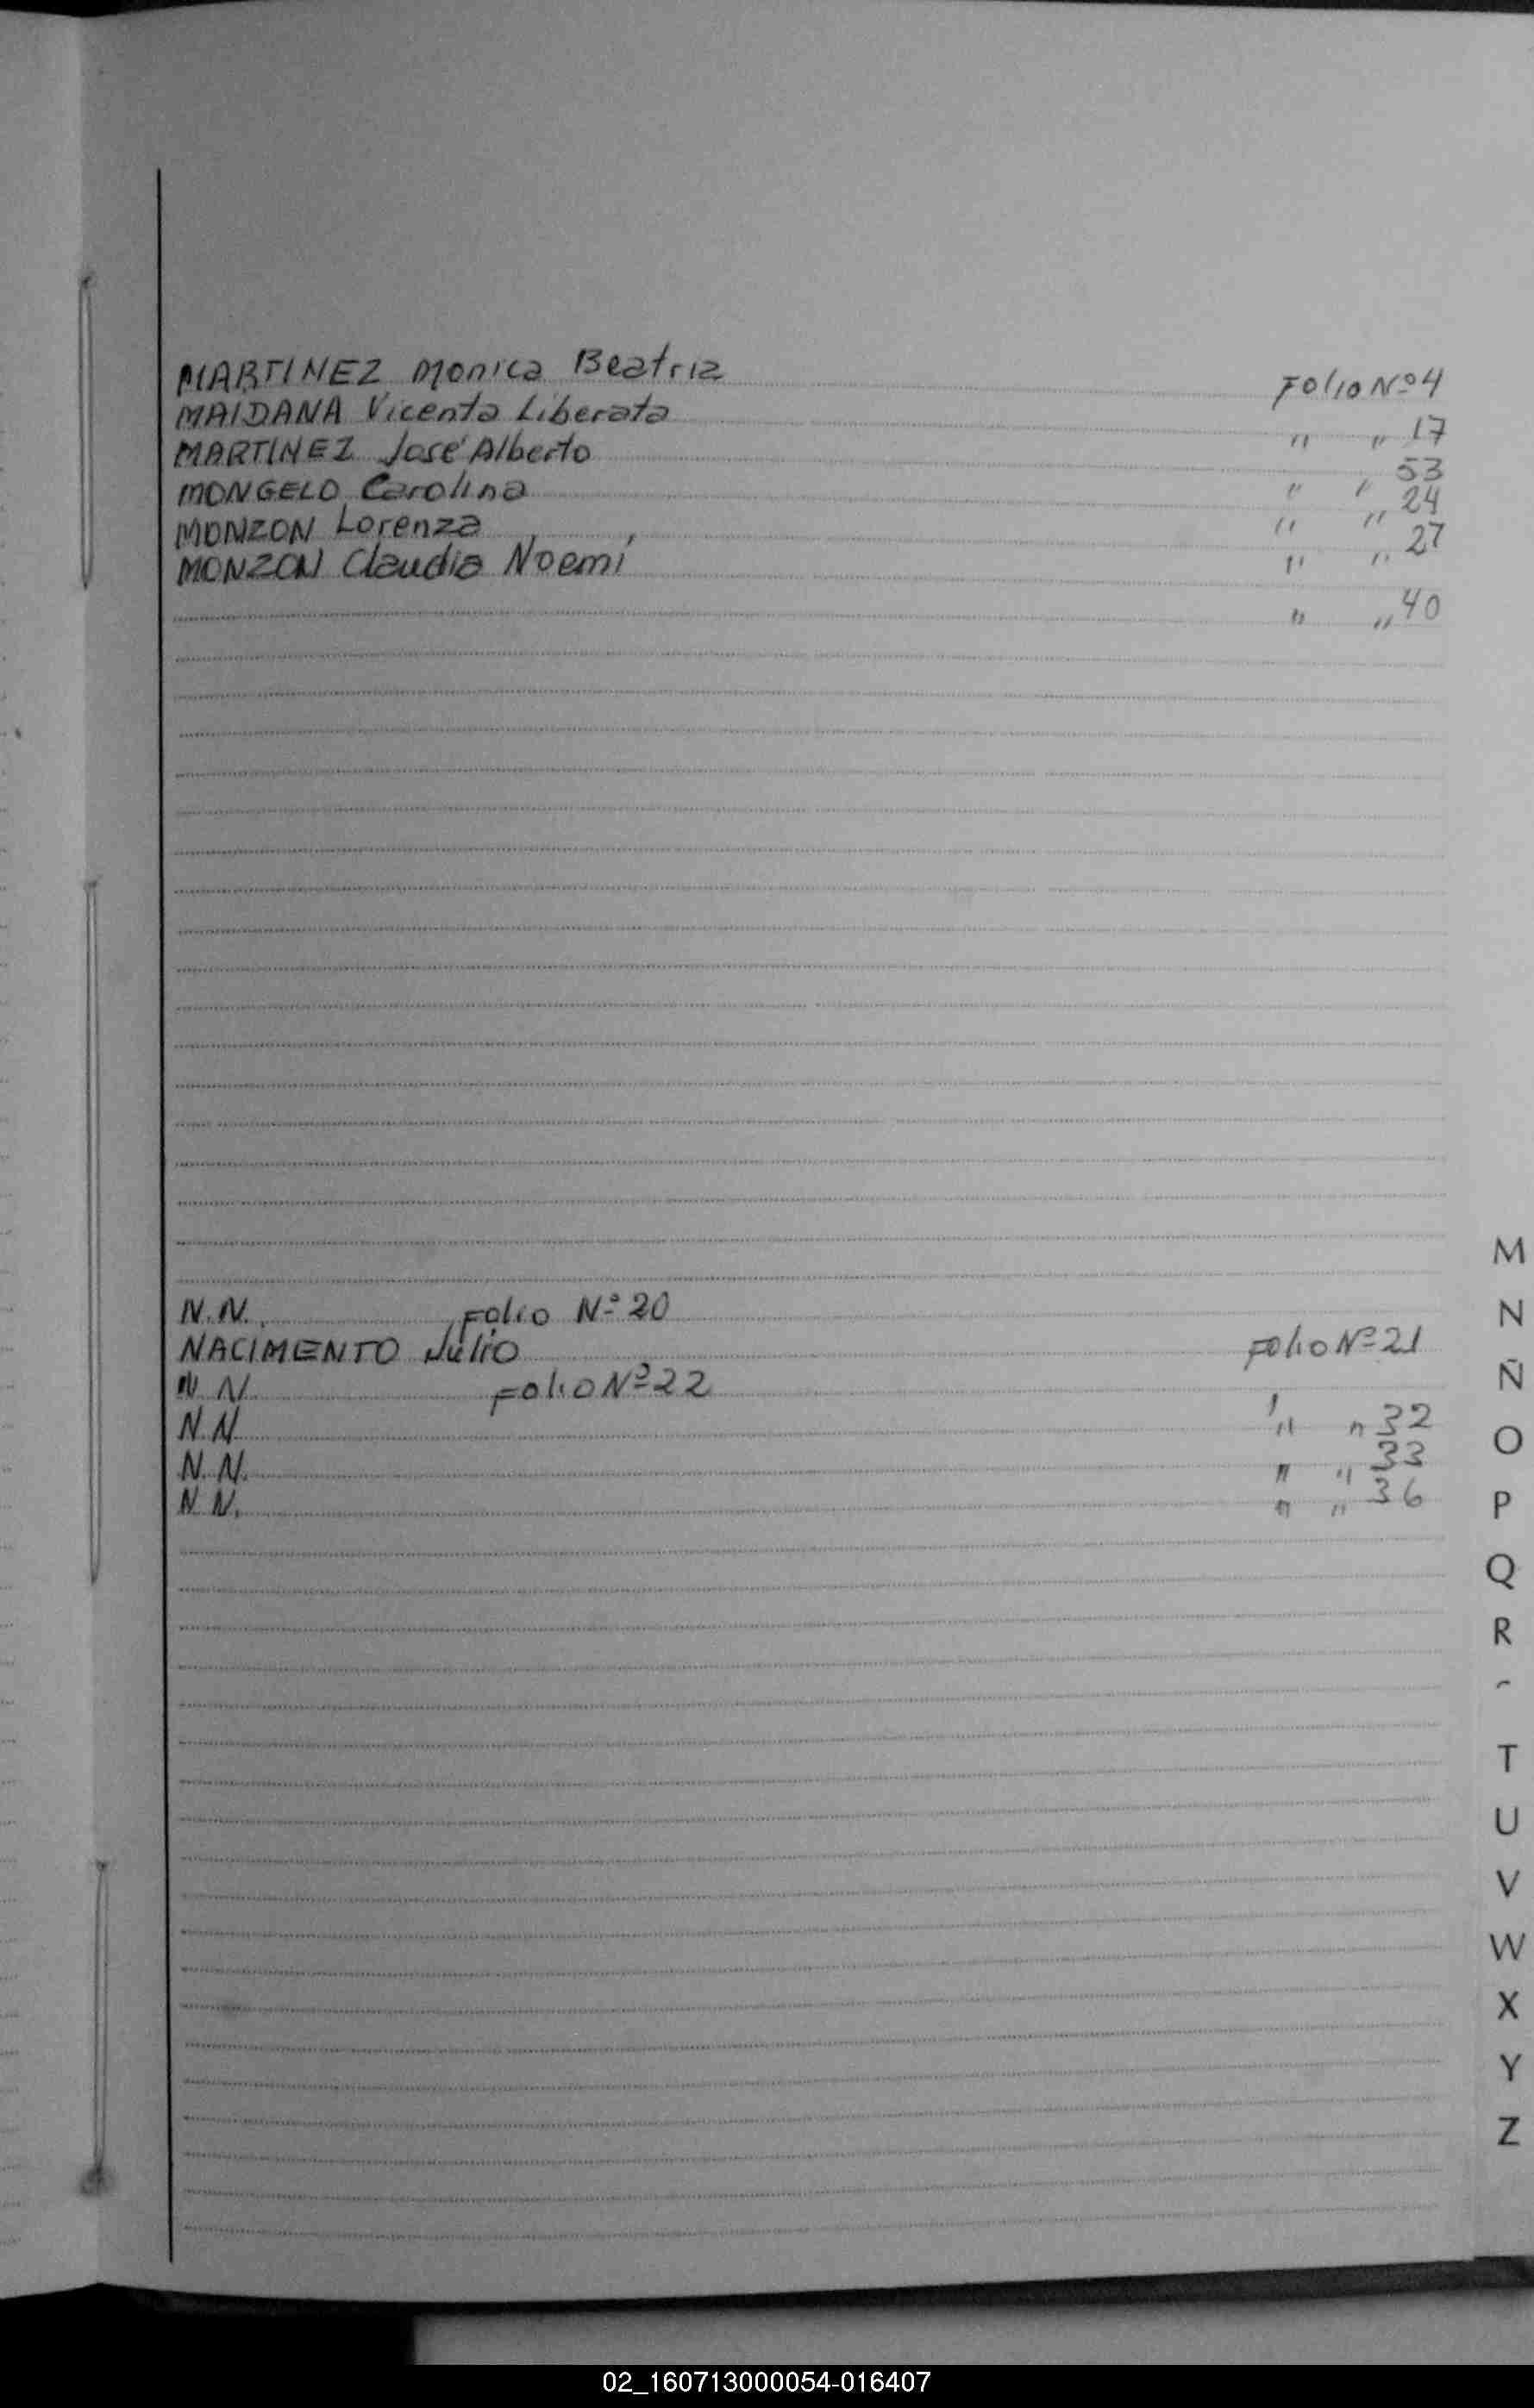 MARTINEZ Monica Beatriz Folio Nº 4
MAIDANA Vicenta Liberata " " 17
MARTINEZ José Alberto " " 53
MONGELO Carolina " " 24
MONZON Lorenza " " 27
MONZON Claudia Noemí " " 40
N.N. Folio Nº 20
NACIMENTO Julio Folio Nº 21
N N Folio Nº 22
N.N. " " 32
N.N. " " 33
N.N. " " 36
M
N
Ñ
O
P
Q
R
T
U
V
W
X
Y
Z
02_160713000054-016407